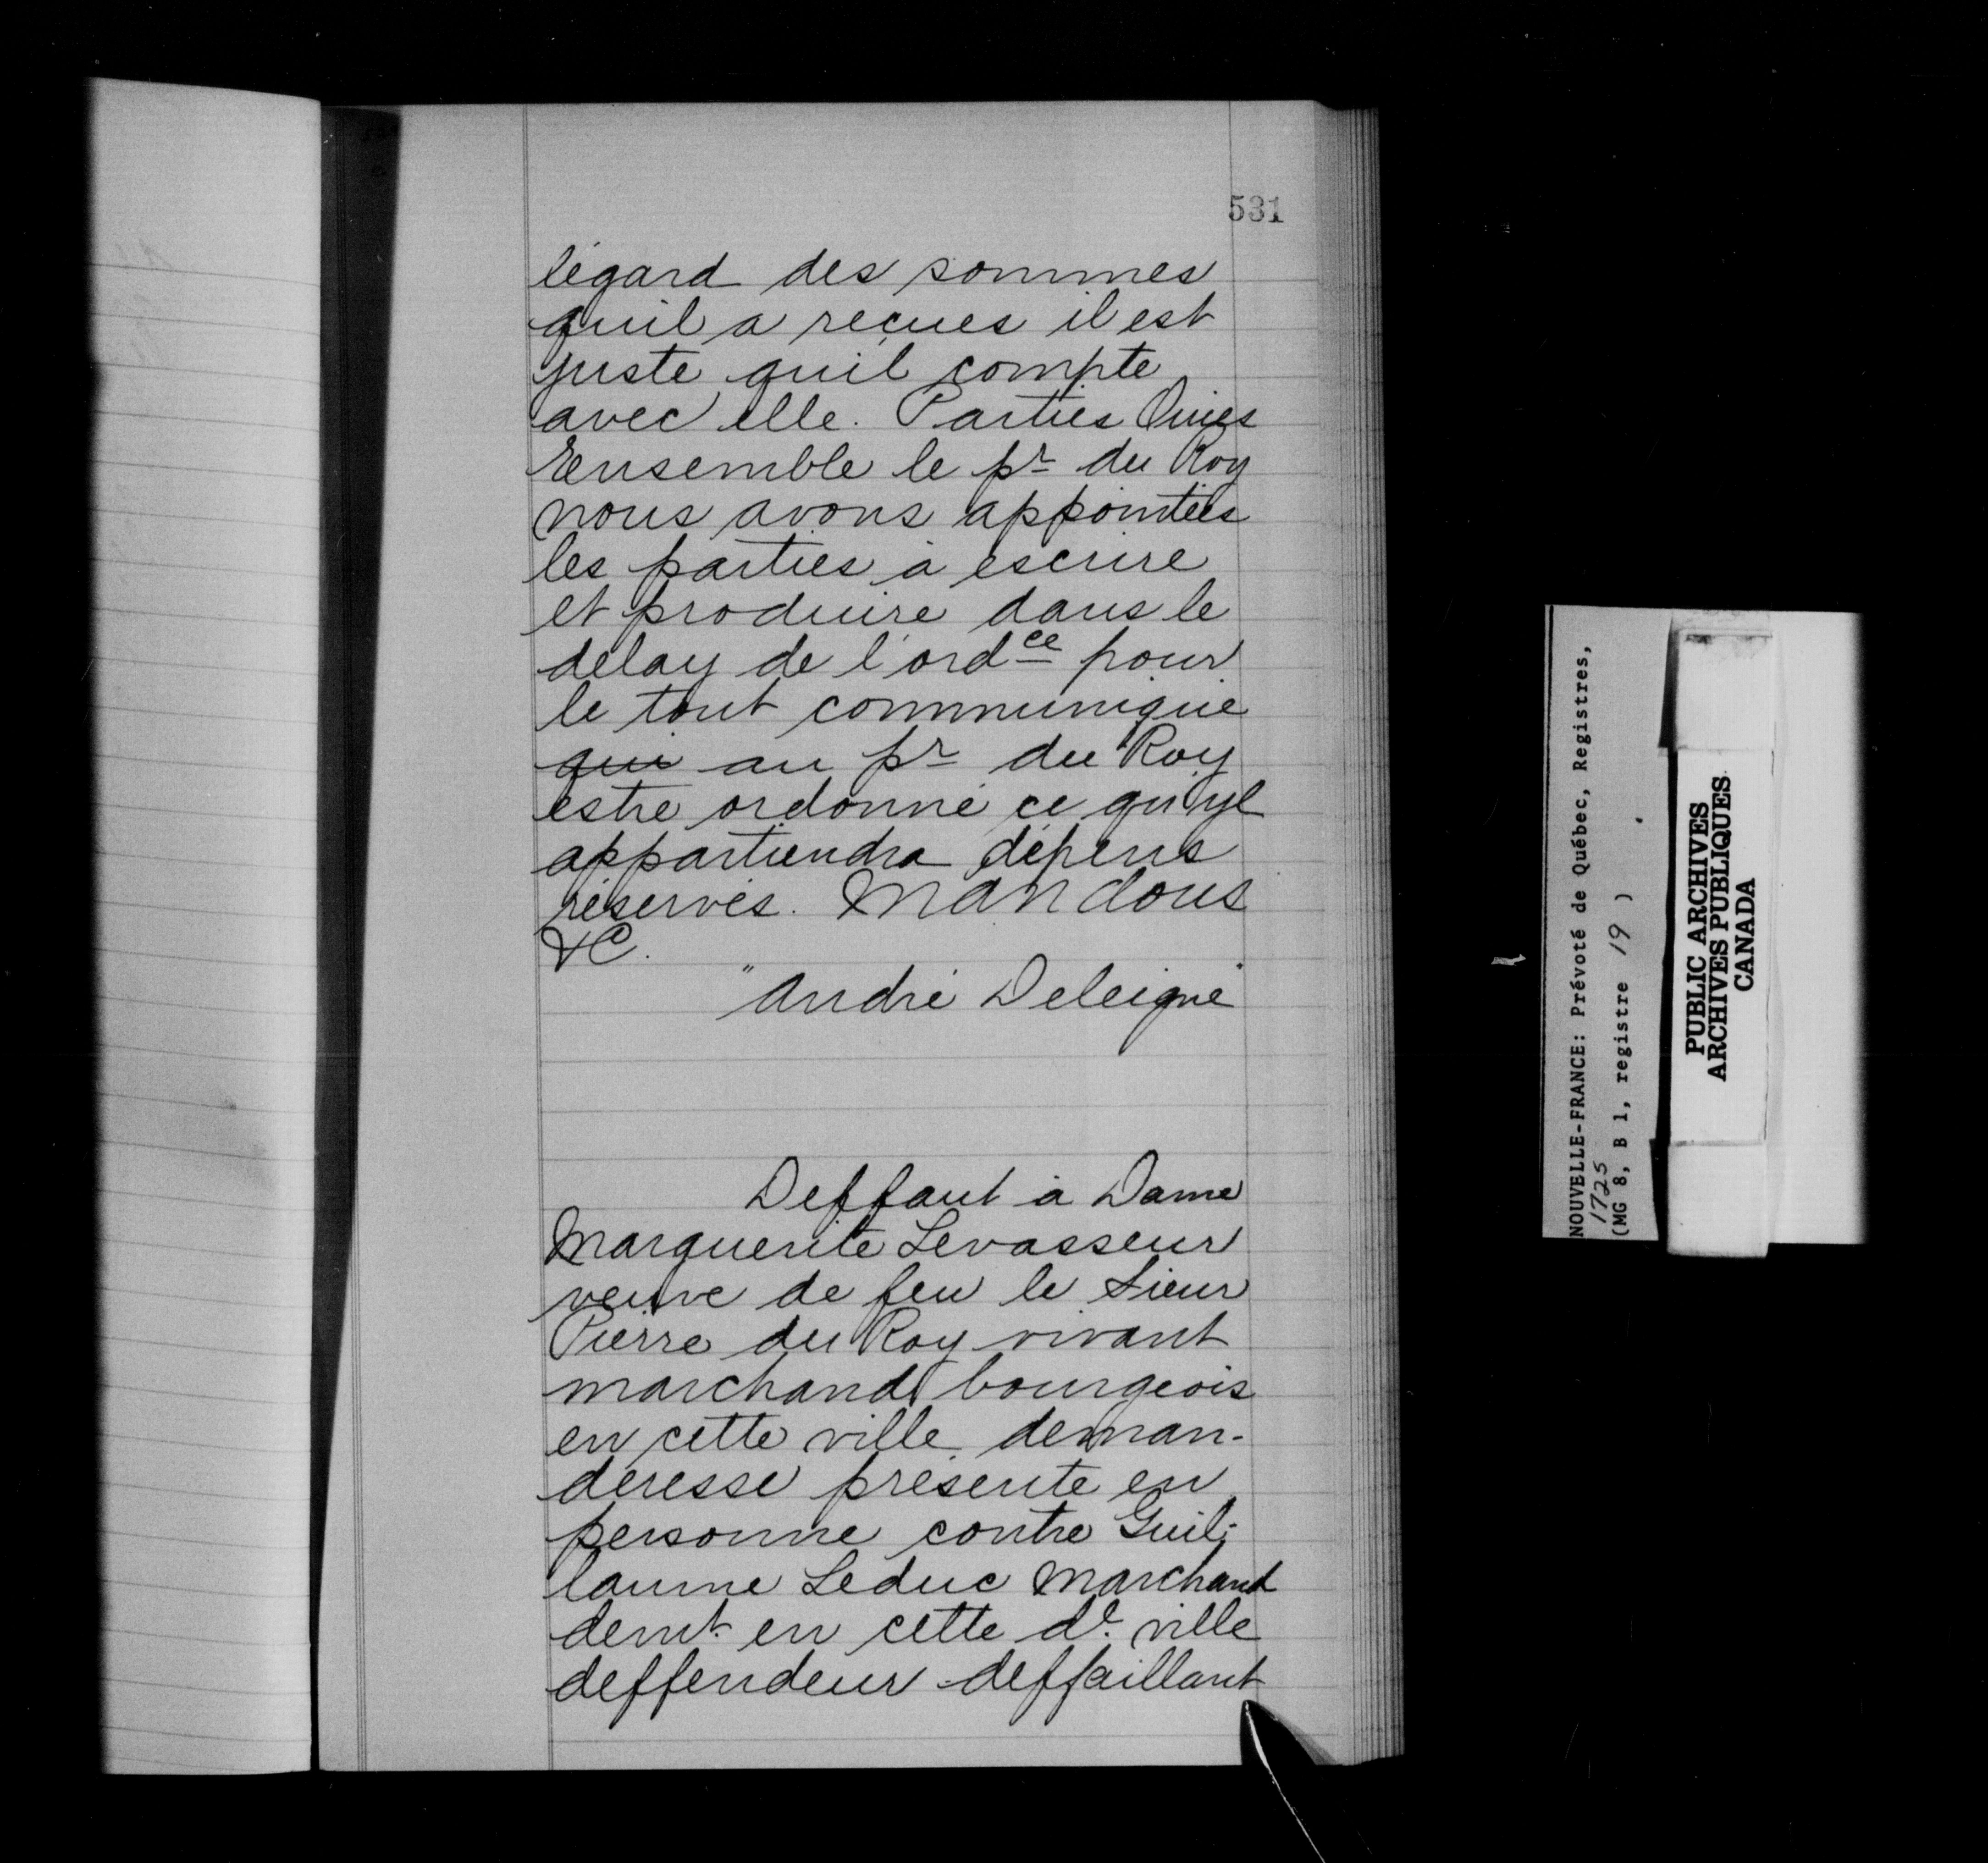 531
légard des sommes
quil a reçues il est
juste quil compte
avec elle. Parties Ouies
Ensemble le pr du Roy
nous avons appointées
les parties à escrire
et produire dans le
delay de l'ordce pour
le tout communiqué
qui au pr du Roy
estre ordonné ce qu'yl
appartiendra dépens
réservés. Mandons
&C.
"André Deleigne"
Deffaut à Dame
Marguerite Levasseur
veuve de feu le Sieur
Pierre du Roy vivant
marchand bourgeois
en cette ville deman-
deresse présente en
personne contre Guil-
laume Leduc Marchand
demt. en cette de. ville
deffendeur deffaillant
NOUVELLE-FRANCE: Prévoté de Québec, Registres,
1725
(MG 8, B 1, registre 19 )
PUBLIC ARCHIVES
ARCHIVES PUBLIQUES
CANADA